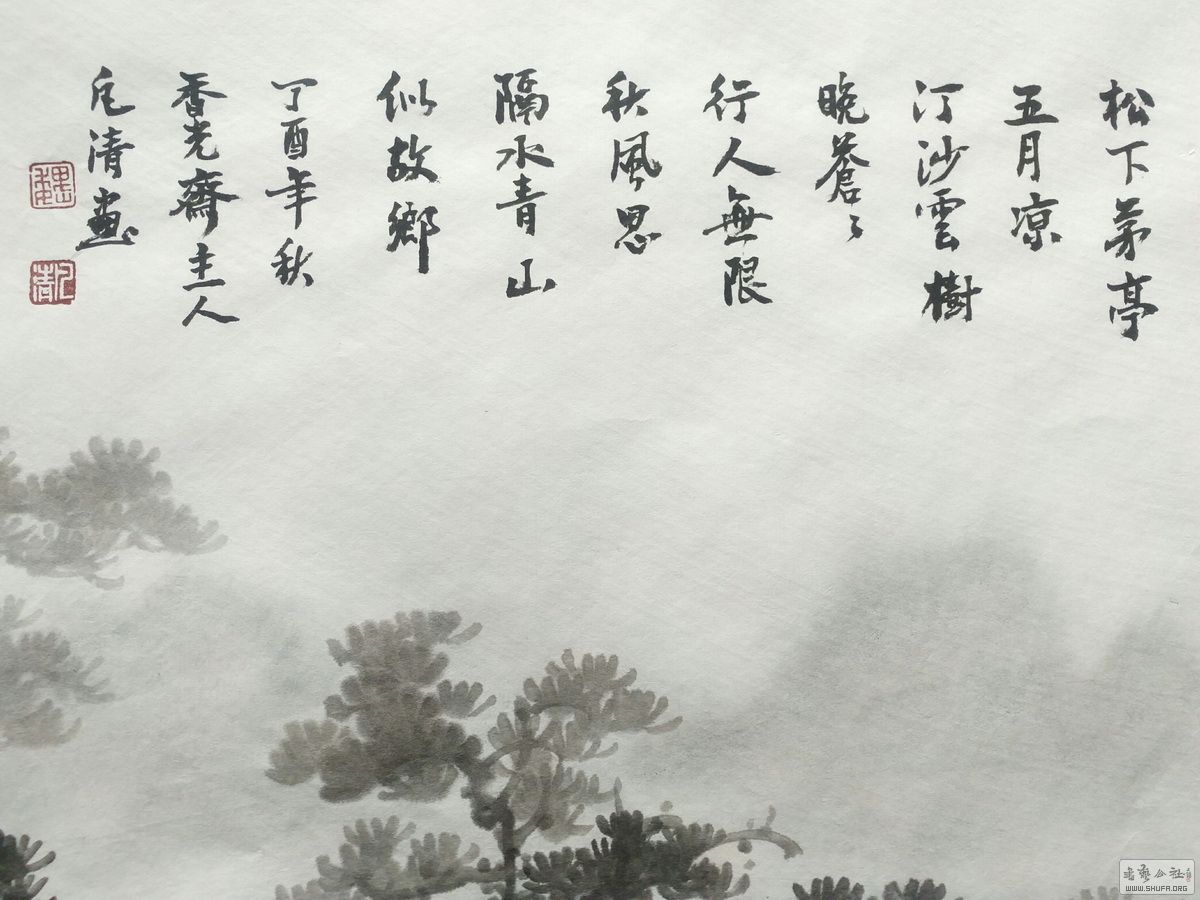 松下茅亭
五月凉
汀沙雲樹
晚蒼〻
行人無限
秋風思
隔水青山
似故鄉
丁酉年秋
香光齋主人
清畫
魏
書藝公社
WWW.SHUFA.ORG